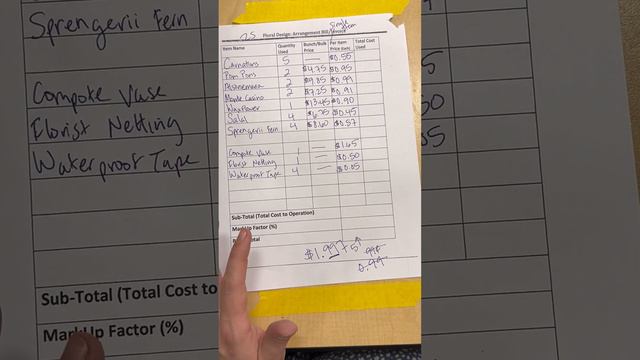 Single
2.5 Stem
Floral Design: Arrangement Bill/Invoice
Item Name Quantity Used Bunch/Bulk Price Per Item Price Total Cost Used
Carnations 5 — $0.55
Pom Pons 2 $4.75 $0.95
Alstroemeria 2 $9.85 $0.99
Monte Casino 2 $7.25 $0.91
Waxflower 1 $13.45 $0.90
Salal 4 $6.75 $0.45
Sprengerii Fern 4 $8.60 $0.57
Compote Vase 1 — $1.65
Florist Netting 1 — $0.50
Waterproof Tape 4 — $0.05
Sub-Total (Total Cost to Operation)
MarkUp Factor (%)
$1.997 5↑
0.99
Sprengerii Fern
Compote Vase
Florist Netting
Waterproof Tape
Sub-Total (Total Cost to
MarkUp Factor (%)